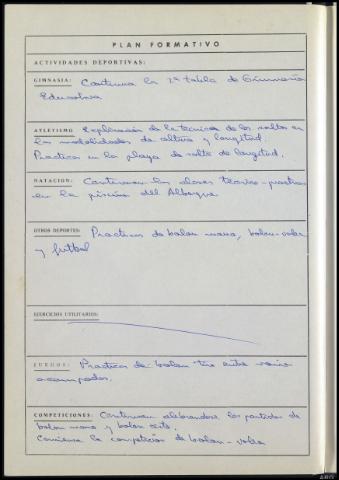 PLAN FORMATIVO
ACTIVIDADES DEPORTIVAS:
GIMNASIA: Continua la 2ª tabla de Gimnasia
Educativa
ATLETISMO Explicación de la tecnica de los saltos en
las modalidades de altura y longitud.
Practicas en la playa de salto de longitud.
NATACION: Continuan las clases teorico-practicas
en la piscina del Albergue
OTROS DEPORTES: Practicas de balon mano, balon-volea
y futbol
EJERCICIOS UTILITARIOS:
JUEGOS: Practicas de balon tiro entre varios
acampados.
COMPETICIONES: Continuan celebrandose los partidos de
balon mano y balon cesto.
Comienza la competición de balon-volea